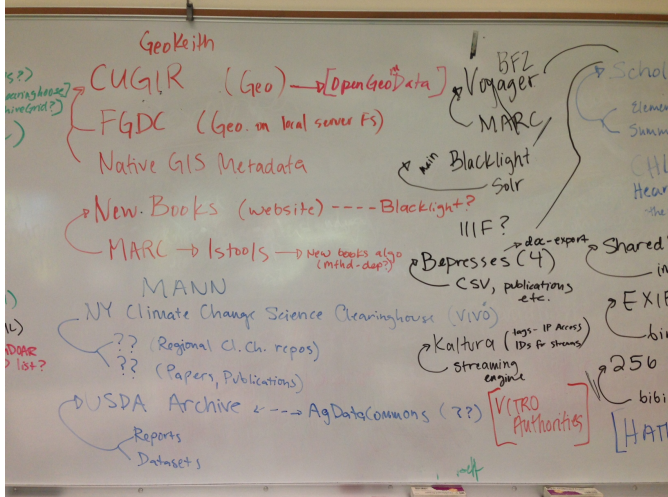 GeoKeith
CUGIR (Geo) → [OpenGeoData]
FGDC (Geo. on local server FS)
Native GIS Metadata
New Books (website) ---- Blacklight?
MARC → lstools → New books algo
(mthd-dep?)
MANN
NY Climate Change Science Clearinghouse (VIVO)
?? (Regional Cl. Ch. repos)
?? (Papers, Publications)
USDA Archive <---> AgDataCommons (??)
Reports
Datasets
BF2
Voyager
MARC
main Blacklight
Solr
IIIF?
→ doc-export
Bepresses (4)
CSV, publications
etc.
Kaltura (tags- IP Access
IDs for streams)
streaming
engine
[VITRO
Authorities]
Schol
Elemen
Summ
Hear
the
Shared
in
EXIF
bi
256
bibi
[HAT
s?)
list?